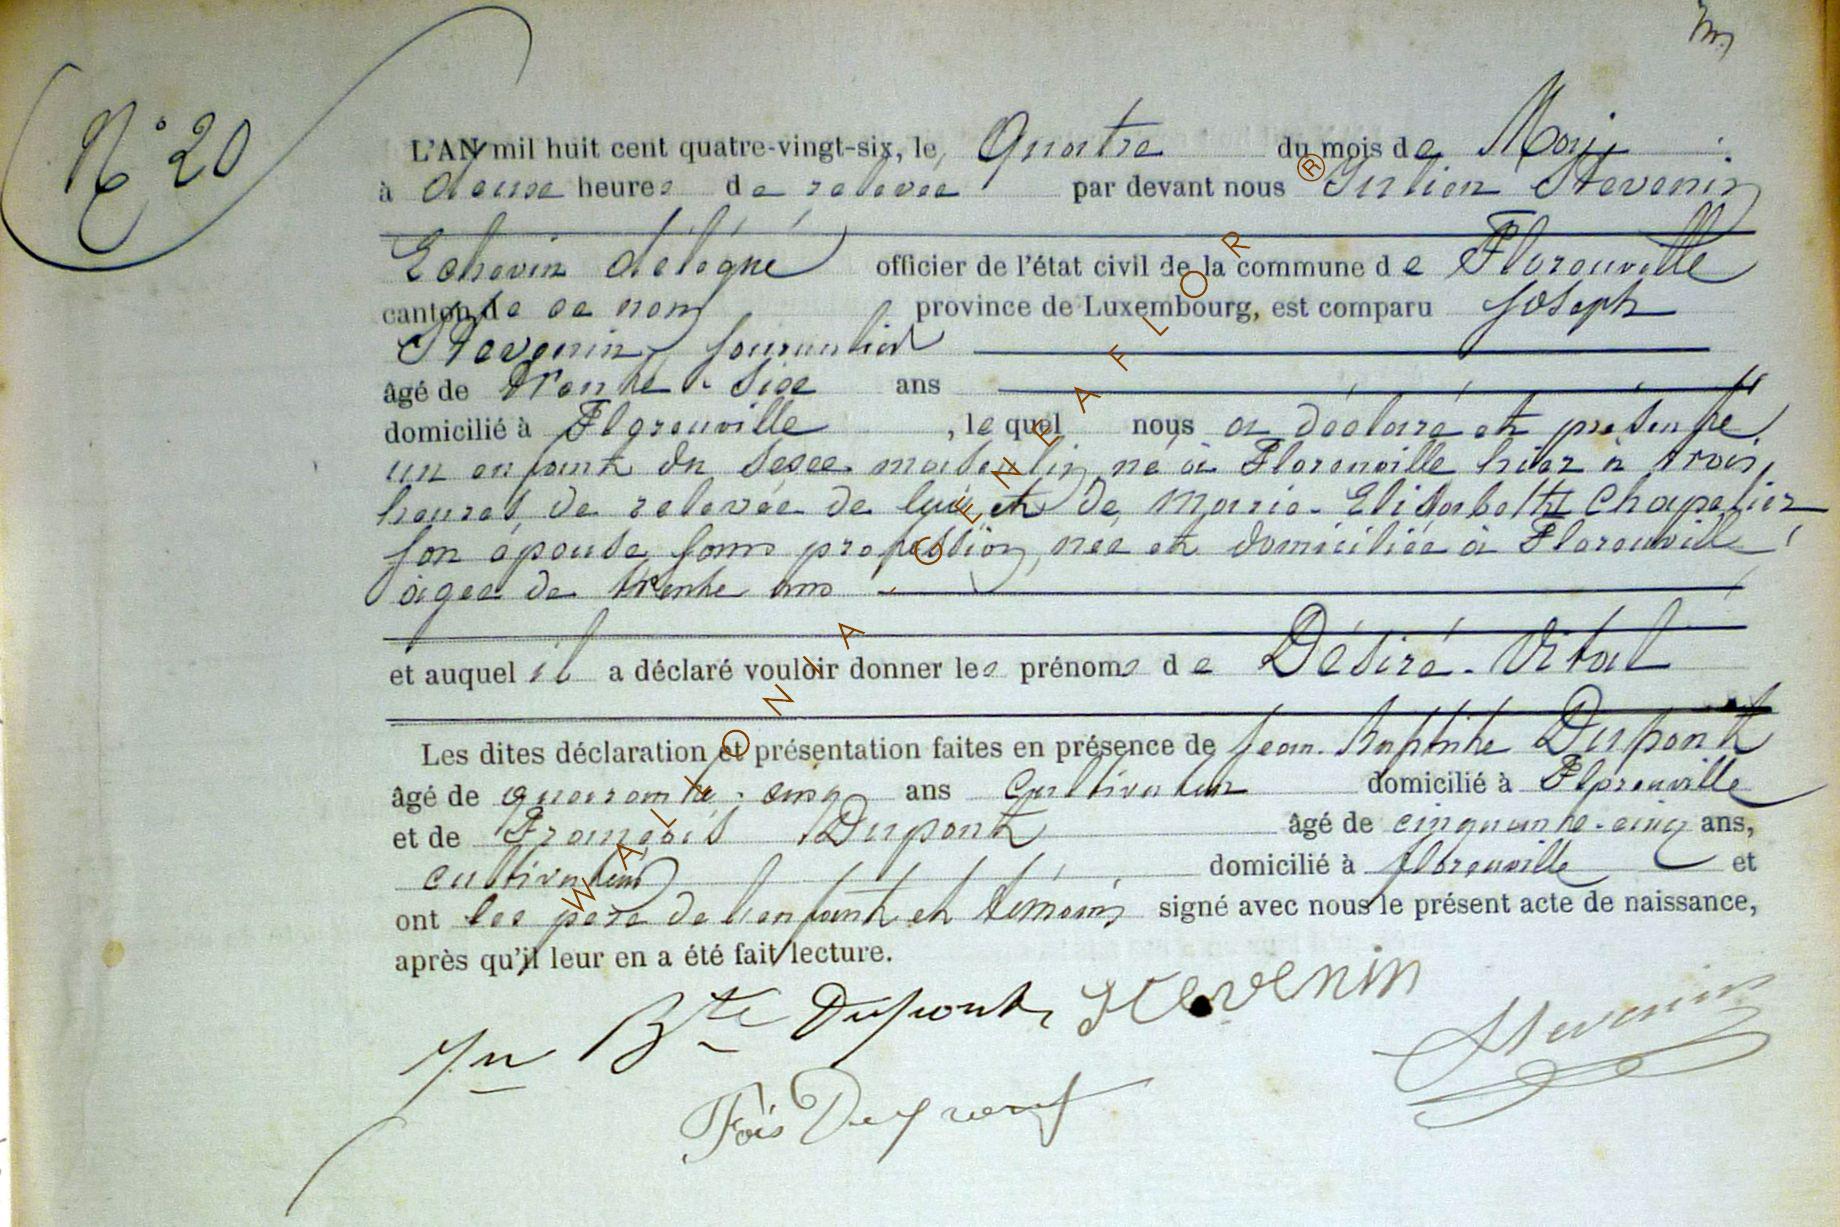 N° 20
L'AN mil huit cent quatre-vingt-six, le Quatre du mois de Mai
à deux heures de relevée par devant nous Julien Stevenin
Echevin délégué officier de l'état civil de la commune de Florenville
canton de ce nom province de Luxembourg, est comparu Joseph
Stevenin, journalier
âgé de trente-six ans
domicilié à Florenville, lequel nous a déclaré et présenté
un enfant du sexe masculin, né à Florenville hier à trois
heures de relevée de lui et de Marie-Elisabeth Chapelier
son épouse, sans profession, née et domiciliée à Florenville,
âgée de trente ans
et auquel il a déclaré vouloir donner les prénoms de Désiré-Vital
Les dites déclaration et présentation faites en présence de Jean-Baptiste Dupont
âgé de quarante-cinq ans cultivateur domicilié à Florenville
et de François Dupont âgé de cinquante-cinq ans,
cultivateur domicilié à florenville et
ont les père de l'enfant et témoins signé avec nous le présent acte de naissance,
après qu'il leur en a été fait lecture.
Jn Bte Dupont Stevenin Stevenin
Fois Dupont
WALLONIA GENEAFLOR ®